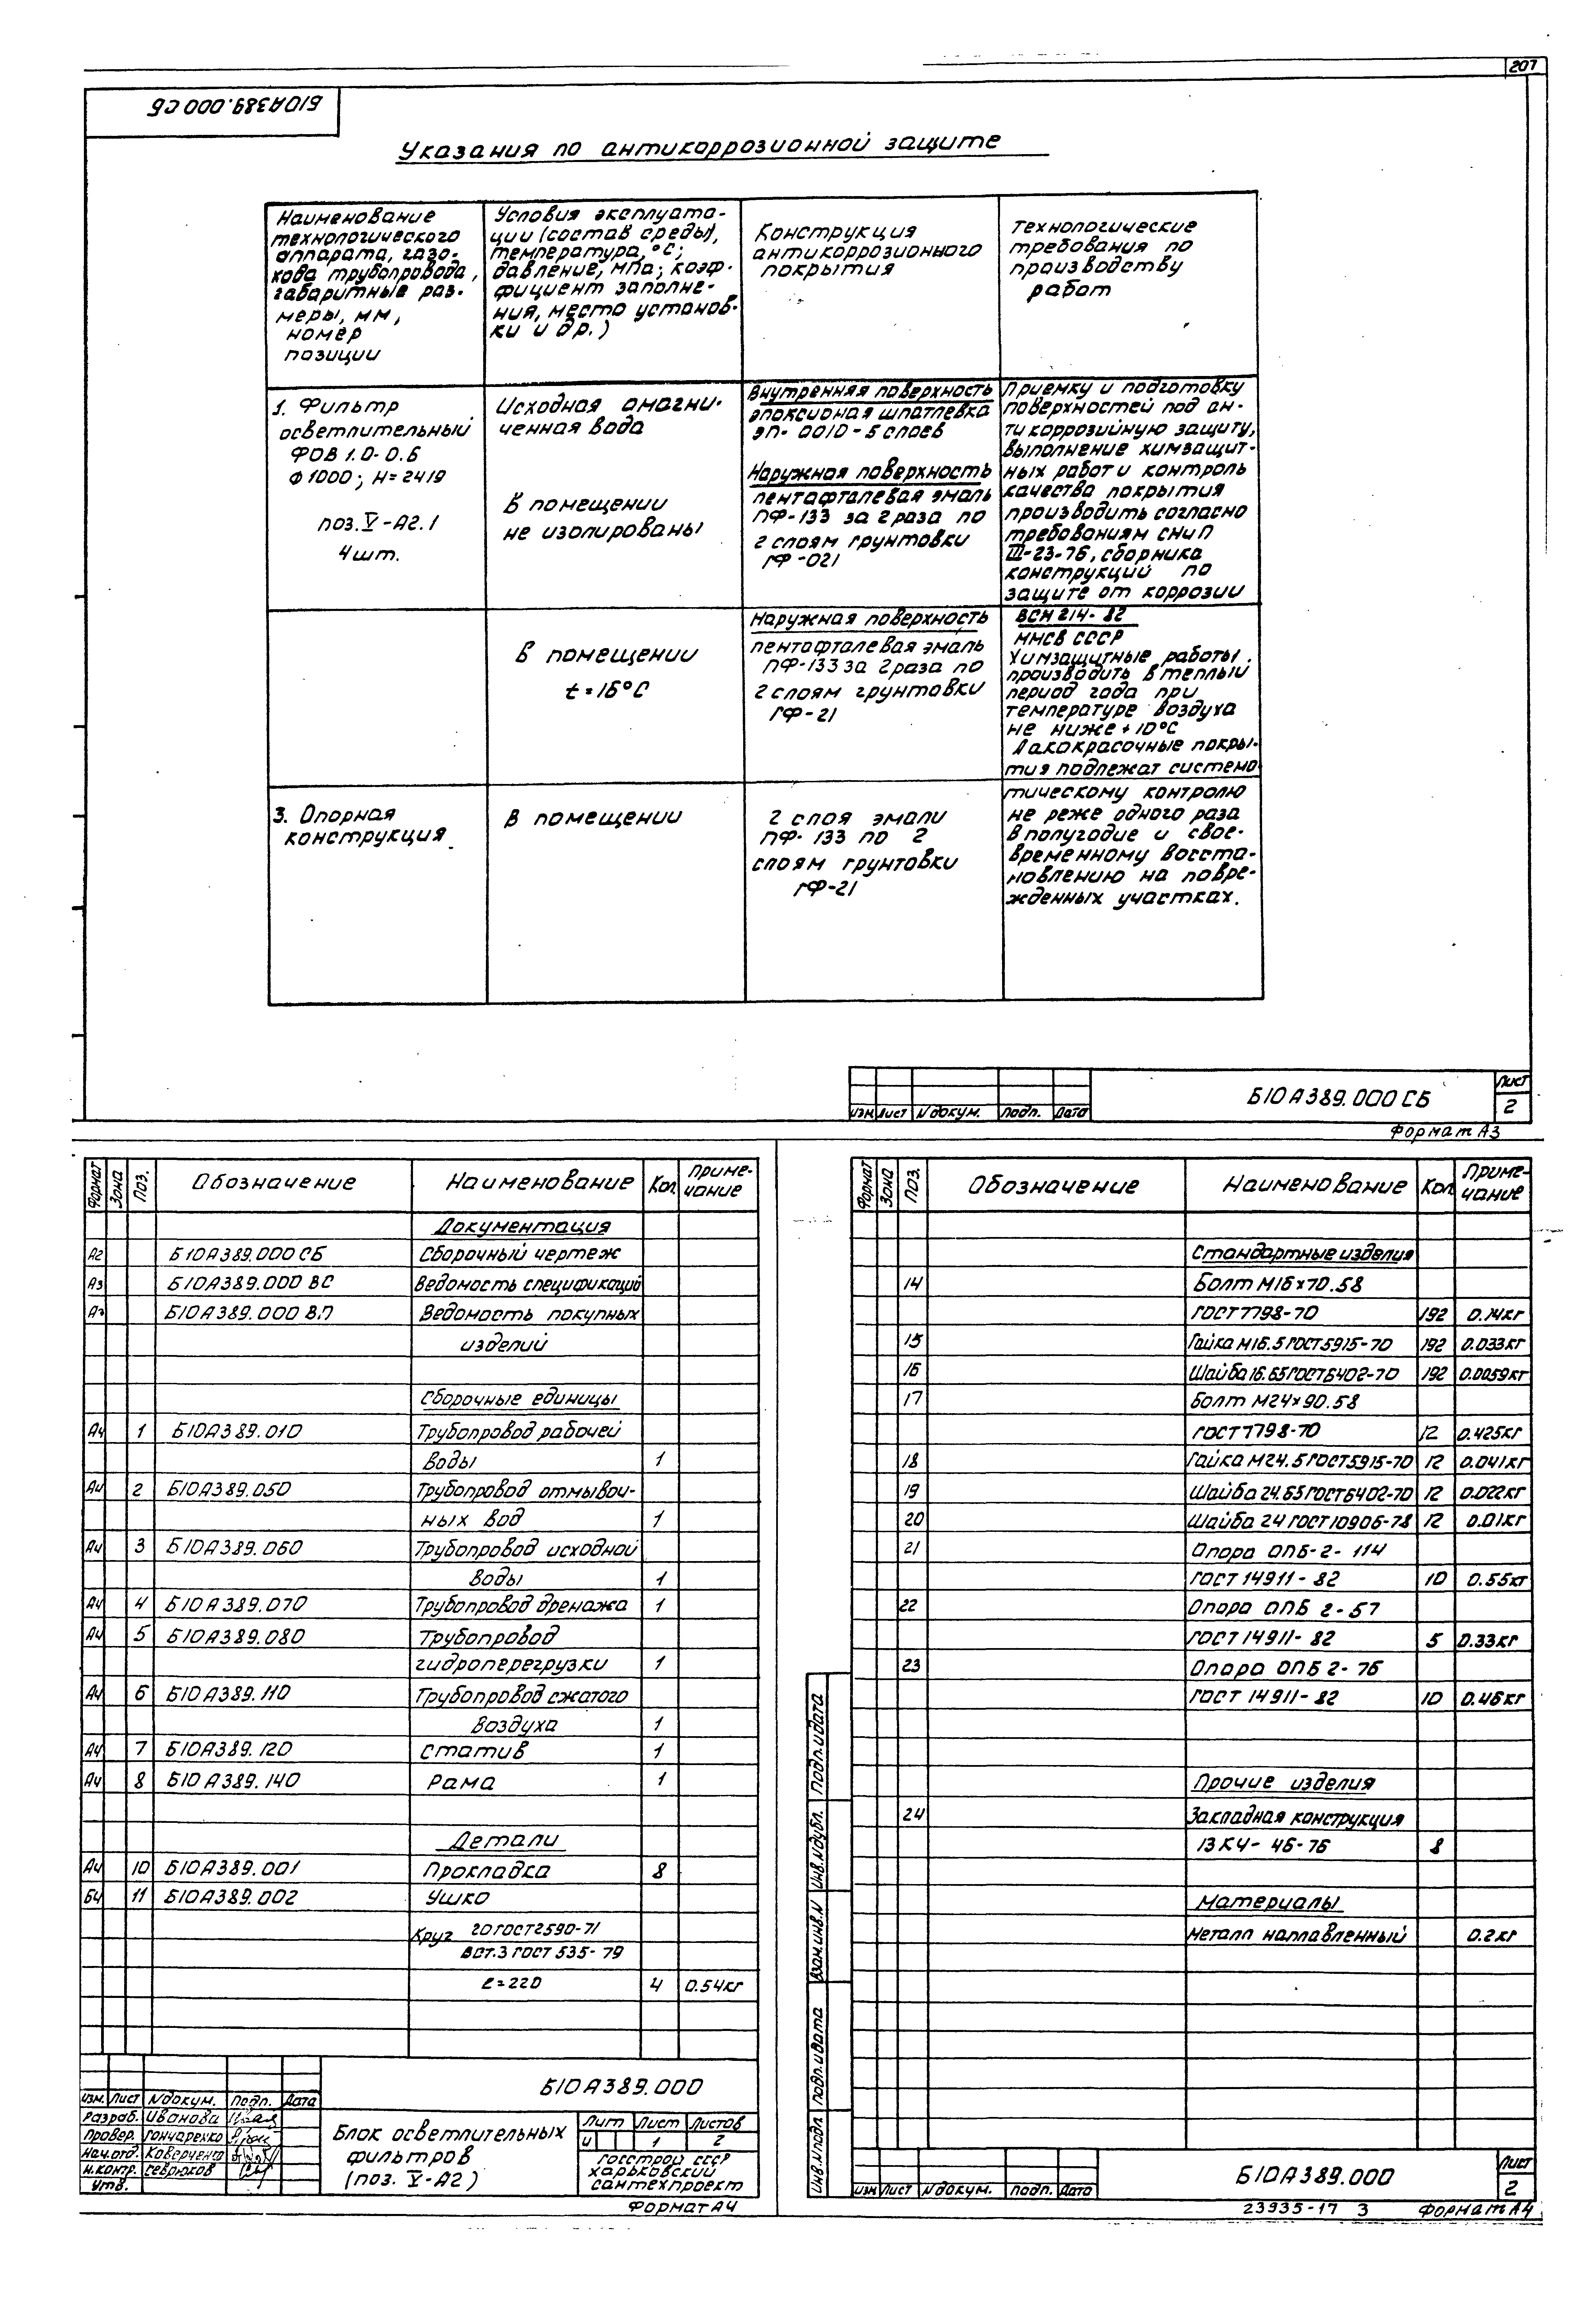 207
Б10А389.000 СБ
Указания по антикоррозионной защите
Наименование
технологического
аппарата, газо-
хода трубопровода,
габаритные раз-
меры, мм,
номер
позиции
Условия эксплуата-
ции (состав среды),
температура, °С;
давление, мпа; коэф-
фициент заполне-
ния, место установ-
ки и др.)
Конструкция
антикоррозионного
покрытия
Технологические
требования по
производству
работ
1. Фильтр
осветлительный
ФОВ 1.0-0.6
Ф1000; Н=2419
поз. V-А2.1
4 шт.
Исходная омагни-
ченная вода
В помещении
не изолированы
Внутренняя поверхность
эпоксидная шпатлевка
ЭП-0010-5 слоев
Наружная поверхность
пентафталевая эмаль
ПФ-133 за 2 раза по
2 слоям грунтовки
ГФ-021
Приемку и подготовку
поверхностей под ан-
тикоррозийную защиту,
выполнение химзащит-
ных работ и контроль
качества покрытия
производить согласно
требованиям СНиП
III-23-76, сборника
конструкций по
защите от коррозии
В помещении
t=16°С
Наружная поверхность
пентафталевая эмаль
ПФ-133 за 2 раза по
2 слоям грунтовки
ГФ-21
ВСН 214-82
ММСВ СССР
Химзащитные работы
производить в теплый
период года при
температуре воздуха
не ниже +10°С
Лакокрасочные покры-
тия подлежат система
тическому контролю
не реже одного раза
в полугодие и свое-
временному восста-
новлению на повре-
жденных участках.
3. Опорная
конструкция
В помещении
2 слоя эмали
ПФ-133 по 2
слоям грунтовки
ГФ-21
Изм Лист N докум. Подп. Дата
Б10А389.000 СБ
Лист
2
Формат А3
Формат Зона Поз. Обозначение Наименование Кол Приме-
чание
Документация
А2 Б10А389.000 СБ Сборочный чертеж
А3 Б10А389.000 ВС Ведомость спецификаций
Б10А389.000 ВП Ведомость покупных
изделий
Сборочные единицы
А4 1 Б10А389.010 Трубопровод рабочей
воды 1
А4 2 Б10А389.050 Трубопровод отмывоч-
ных вод 1
А4 3 Б10А389.060 Трубопровод исходной
воды 1
А4 4 Б10А389.070 Трубопровод дренажа 1
А4 5 Б10А389.080 Трубопровод
гидроперегрузки 1
А4 6 Б10А389.110 Трубопровод сжатого
воздуха 1
А4 7 Б10А389.120 Статив 1
А4 8 Б10А389.140 Рама 1
Детали
А4 10 Б10А389.001 Прокладка 8
БЧ 11 Б10А389.002 Ушко
Круг 20 ГОСТ 2590-71
ВСт.3 ГОСТ 535-79
ℓ=220 4 0.54кг
Изм. Лист N докум. Подп. Дата
Разраб. Иванова
Провер. Гончаренко
Нач.отд. Коверченко
Н.контр. Севрюков
Утв.
Б10А389.000
Блок осветлительных
фильтров
(поз. V-А2)
Лит Лист Листов
И 1 2
Госстрой СССР
Харьковский
сантехпроект
Формат А4
Формат Зона Поз. Обозначение Наименование Кол Приме-
чание
Стандартные изделия
14 Болт М16×70.58
ГОСТ 7798-70 192 0.14кг
15 Гайка М16.5 ГОСТ 5915-70 192 0.033кг
16 Шайба 16.65 ГОСТ 6402-70 192 0.0059кг
17 Болт М24×90.58
ГОСТ 7798-70 12 0.425кг
18 Гайка М24.5 ГОСТ 5915-70 12 0.041кг
19 Шайба 24.65 ГОСТ 6402-70 12 0.022кг
20 Шайба 24 ГОСТ 10906-78 12 0.01кг
21 Опора ОПБ-2-114
ГОСТ 14911-82 10 0.55кг
22 Опора ОПБ 2-57
ГОСТ 14911-82 5 0.33кг
23 Опора ОПБ 2-76
ГОСТ 14911-82 10 0.46кг
Прочие изделия
24 Закладная конструкция
13К4-46-76 8
Материалы
Металл наплавленный 0.2кг
Инв.N подл Подп. и дата Взам.инв.N Инв.N дубл. Подп. и дата
Изм Лист N докум. Подп. Дата
Б10А389.000
Лист
2
23935-17 3 Формат А4